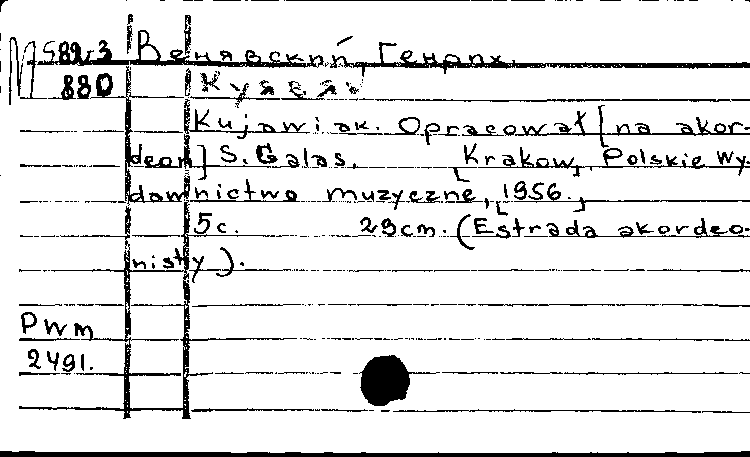 М 582-3 Венявский, Генрих.
880 Куявяк
Kujawiak. Opracował [na akor-
deon] S. Galas. [Krakow], Polskie Wy-
dawnictwo muzyczne, [1956.]
5c. 29cm. (Estrada akordeo-
nisty).
Pwm
2491.